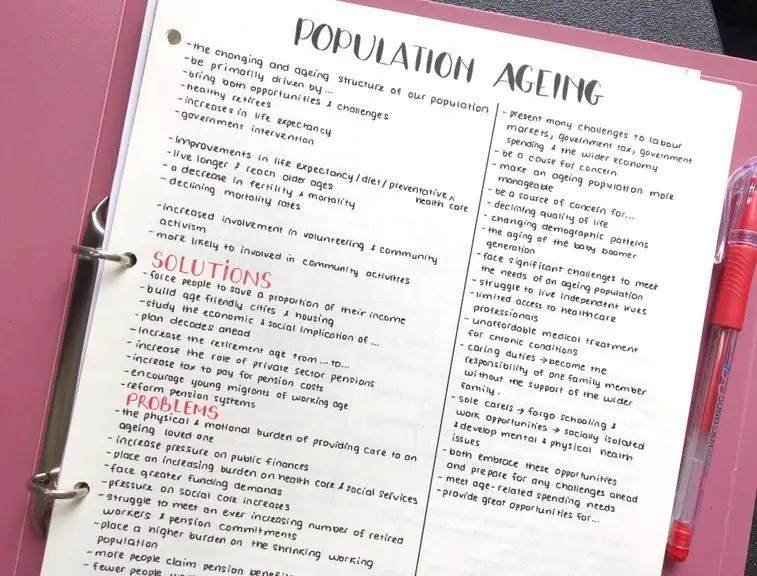 POPULATION AGEING
- the changing and ageing structure of our population
- be primarily driven by ...
- bring both opportunities & challenges
- healthy retirees
- increases in life expectancy
- government intervention
- Improvements in life expectancy/diet/preventative ^
health care
- live longer & reach older ages
- a decrease in fertility & mortality
- declining mortality rates
- increased involvement in volunteering & community
activism
- more likely to involved in community activities
SOLUTIONS
- force people to save a proportion of their income
- build age friendly cities & housing
- study the economic & social implication of ...
- plan decades ahead
- increase the retirement age from ... to...
- increase the role of private sector pensions
- increase tax to pay for pension costs
- encourage young migrants of working age
- reform pension systems
PROBLEMS
- the physical & motional burden of providing care to an
ageing loved one
- increase pressure on public finances
- place an increasing burden on health care & social services
- face greater funding demands
- pressure on social care increases
- struggle to meet an ever increasing number of retired
workers & pension commitments
- place a higher burden on the shrinking working
population
- more people claim pension
- fewer people
- present many challenges to labour
markets, government tax, government
spending & the wider economy
- be a cause for concern
- make an ageing population more
manageable
- be a source of concern for...
- declining quality of life
- changing demographic patterns
- the aging of the baby boomer
generation
- face significant challenges to meet
the needs of an ageing population
- struggle to live independent lives
- limited access to healthcare
professionals
- unaffordable medical treatment
for chronic conditions
- caring duties → become the
responsibility of one family member
without the support of the wider
family.
- sole carers → forgo schooling &
work opportunities → socially isolated
& develop mental & physical health
issues
- both embrace these opportunities
and prepare for any challenges ahead
- meet age-related spending needs
- provide great opportunities for...